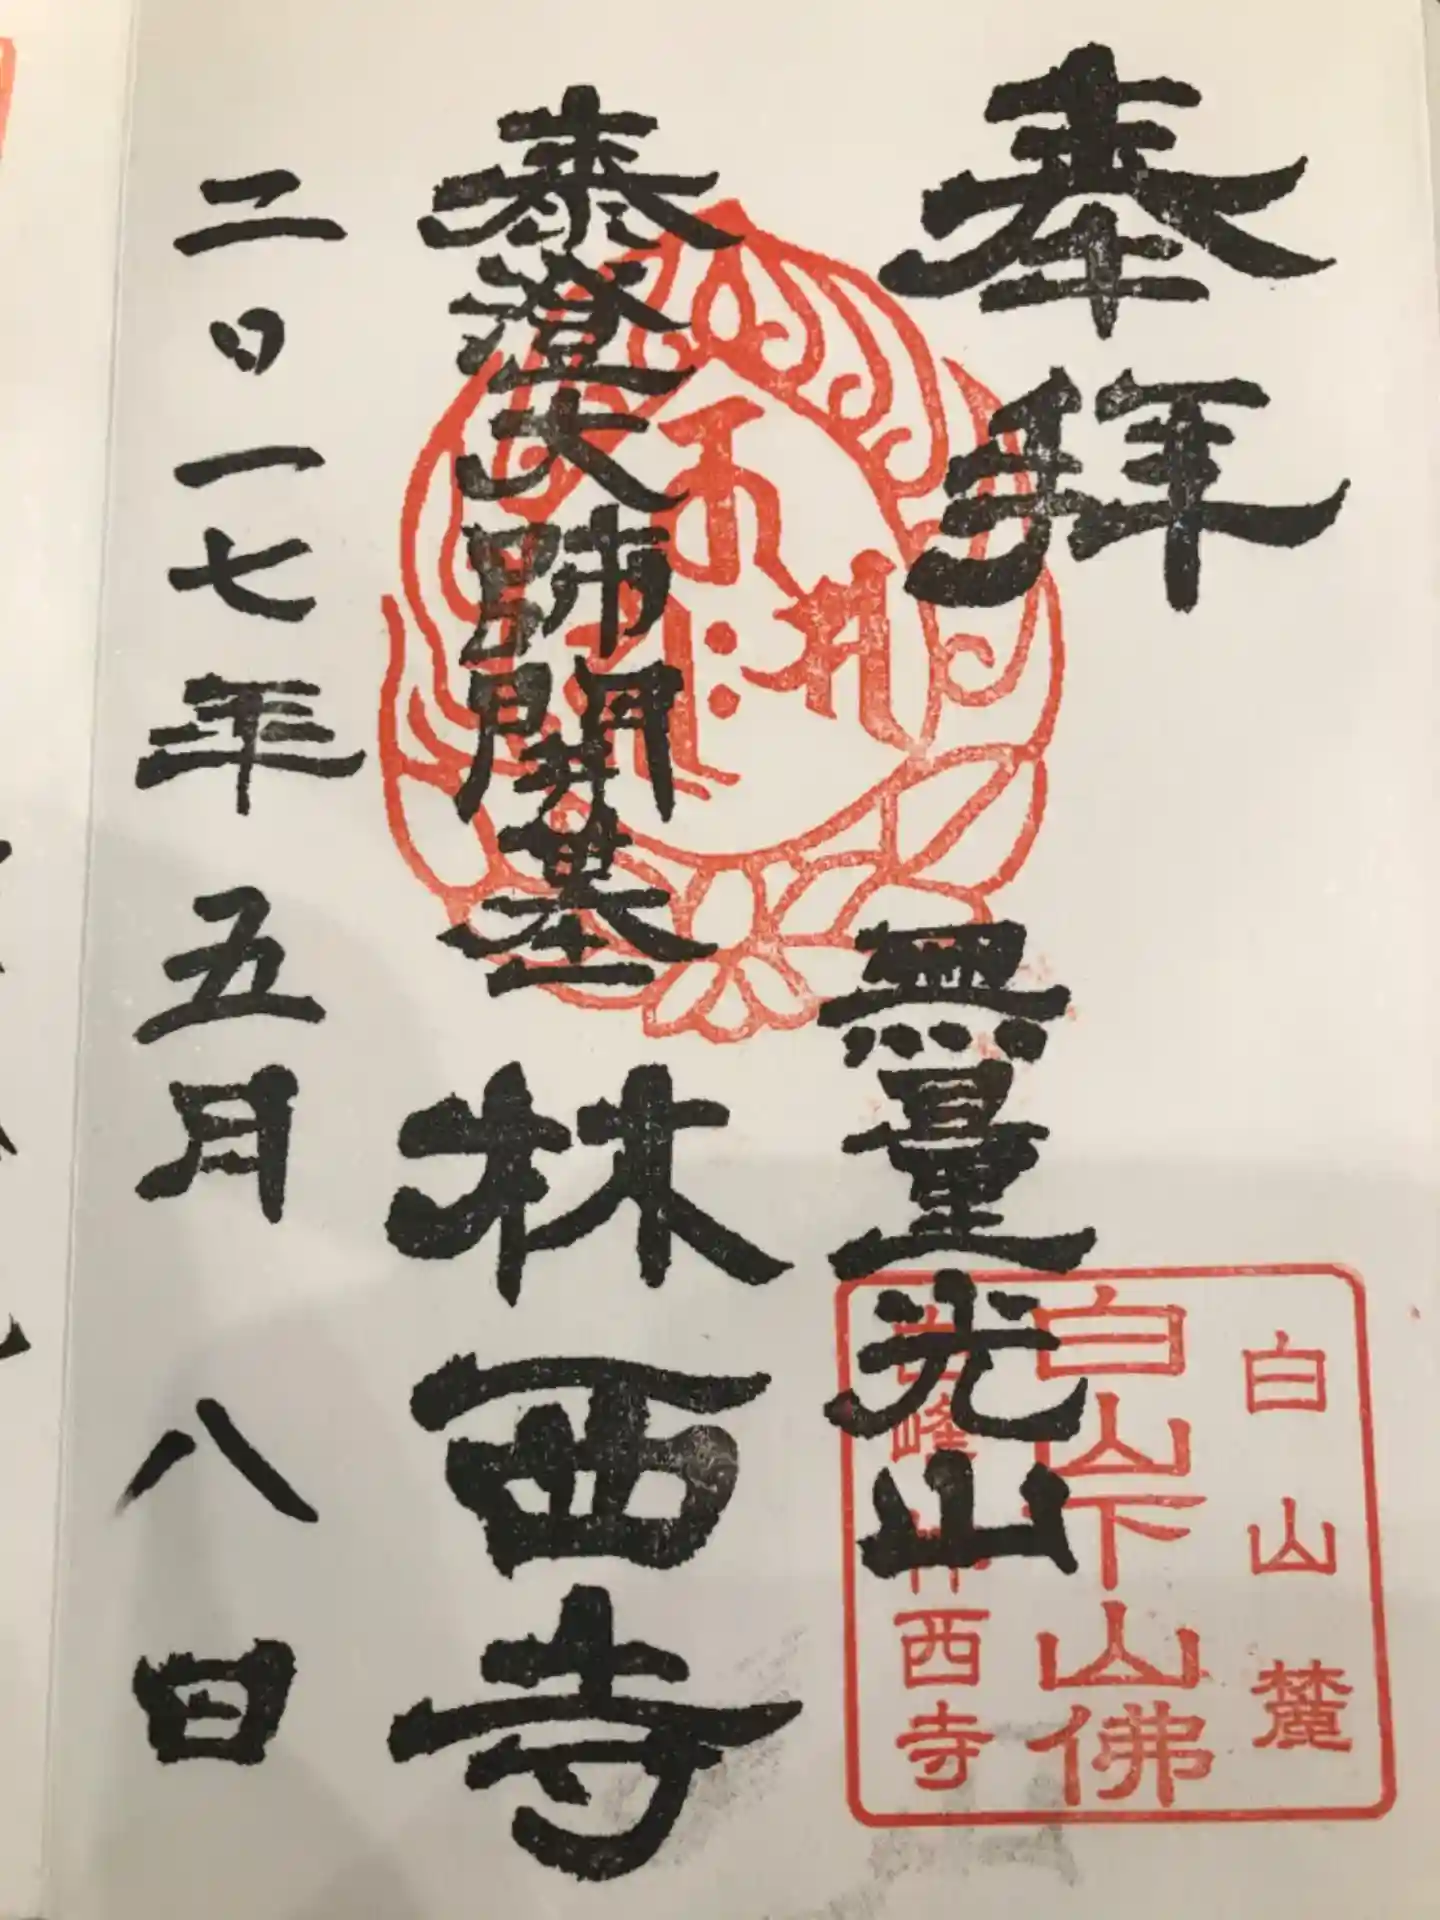 奉拜
無量光山
泰澄大師開基
林西寺
二〇一七年 五月 八日
白山麓
白山下山佛
峰 林西寺